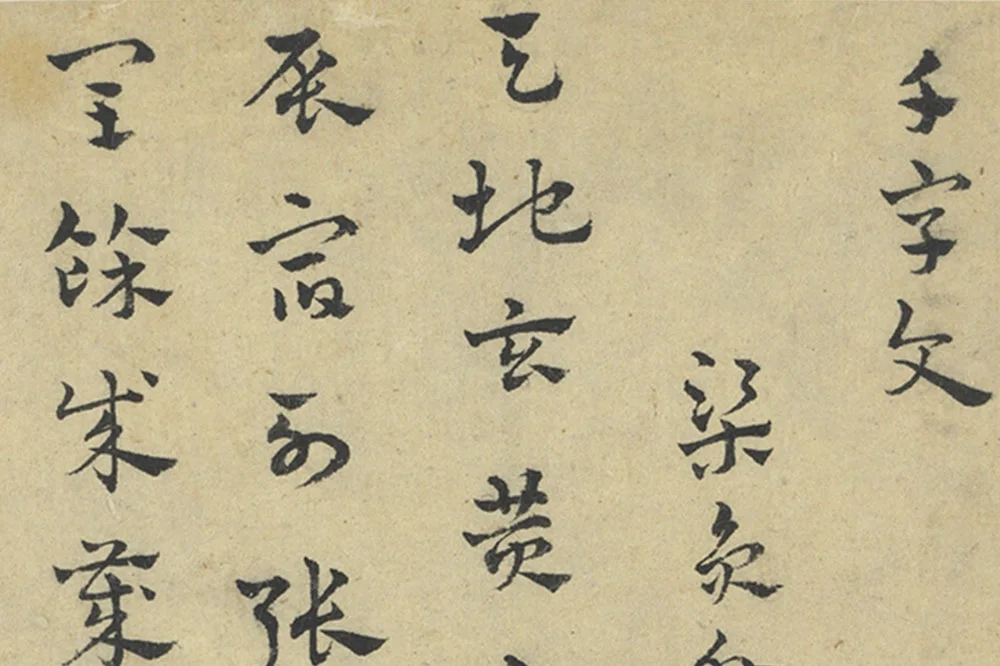 千字文
梁員
天地玄黃
辰宿列張
閏餘成歲